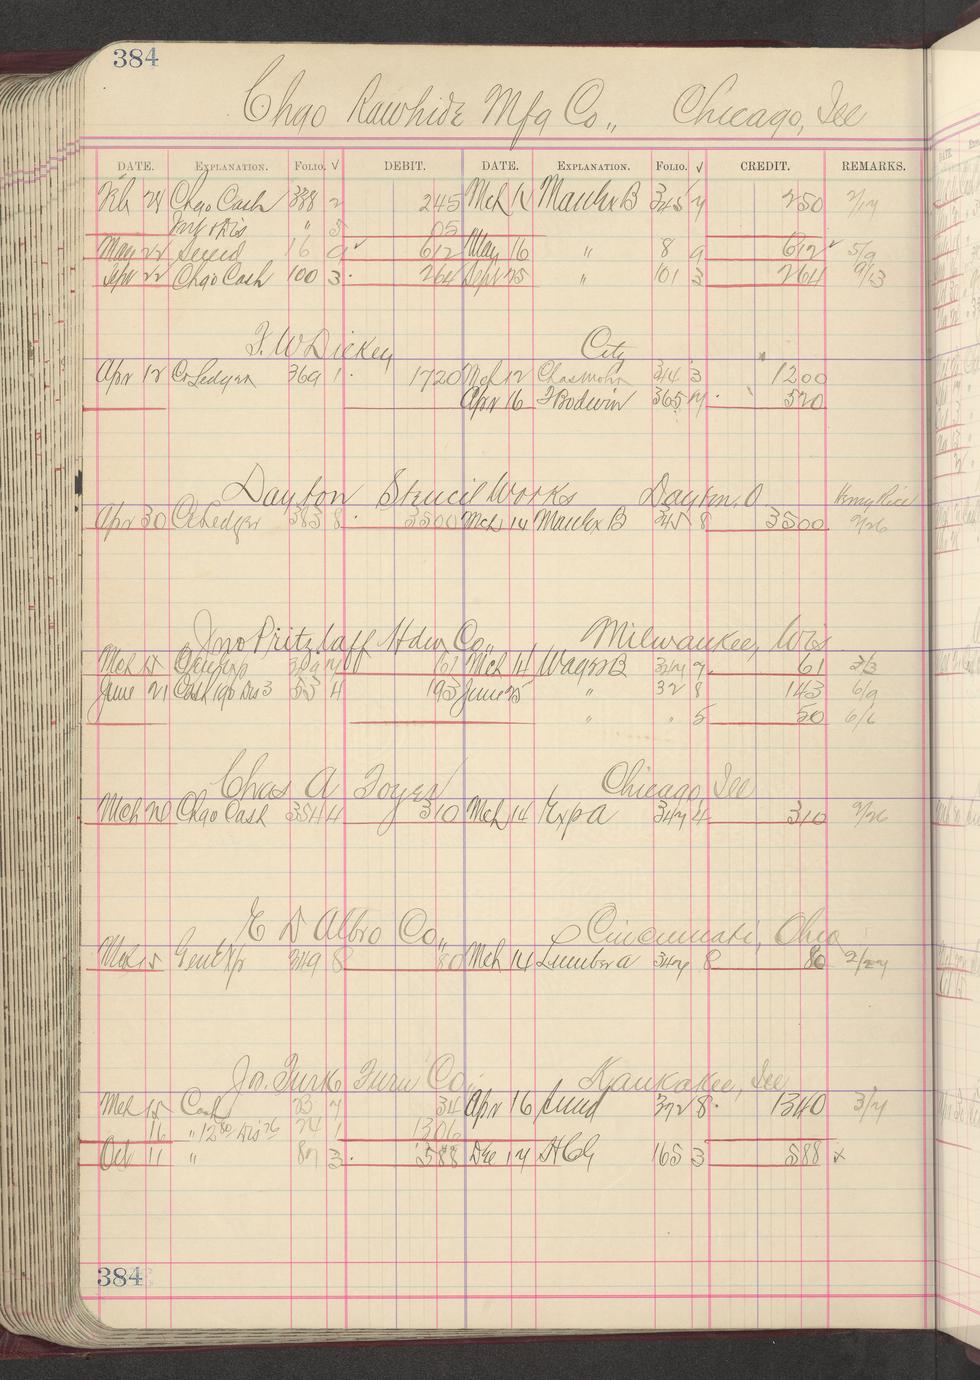 384
Chgo Rawhide Mfg Co., Chicago, Ill
DATE. EXPLANATION. FOLIO. √ DEBIT. DATE. EXPLANATION. FOLIO. √ CREDIT. REMARKS.
Feb 24 Chgo Cash 338 2 245 Mch 12 Mach x B 345 7 250 2/17
" 5 05
May 22 16 9 √ 612 May 16 " 8 9 612 √ 5/9
Sept 22 Chgo Cash 100 3 264 Sept 25 " 101 3 264 9/13
F. W Dickey City
Apr 12 Co Ledger 369 1 1720 Mch 12 Chas Mohr 344 3 1200
Apr 16 F Bodwin 365 7 520
Dayton Stencil Works Dayton, O
Apr 30 Co Ledger 383 8 3500 Mch 14 Mach x B 345 8 3500 2/26
Jno Pritzlaff Hdw Co., Milwaukee, Wis
Mch 15 Gen Exp 349 7 61 Mch 14 Wagon B 347 7 61 3/3
June 21 Cash 190 Dis 3 35 4 193 June 25 " 32 8 143 6/9
" " 5 50 6/6
Chas A Foyer Chicago, Ill
Mch 20 Chgo Cash 354 4 310 Mch 14 Exp a 347 4 310 2/26
E D Albro Co., Cincinnati, Ohio
Mch 15 Gen Exp 349 8 80 Mch 14 Lumber a 347 8 80 2/27
Jn. Turk Furn Co., Kankakee, Ill
Mch 15 Cash 23 7 34 Apr 16 372 8 1340 3/7
16 " 12 80 Dis 26 24 1 1306
Oct 11 " 87 3 588 Dec 17 165 3 588 x
384